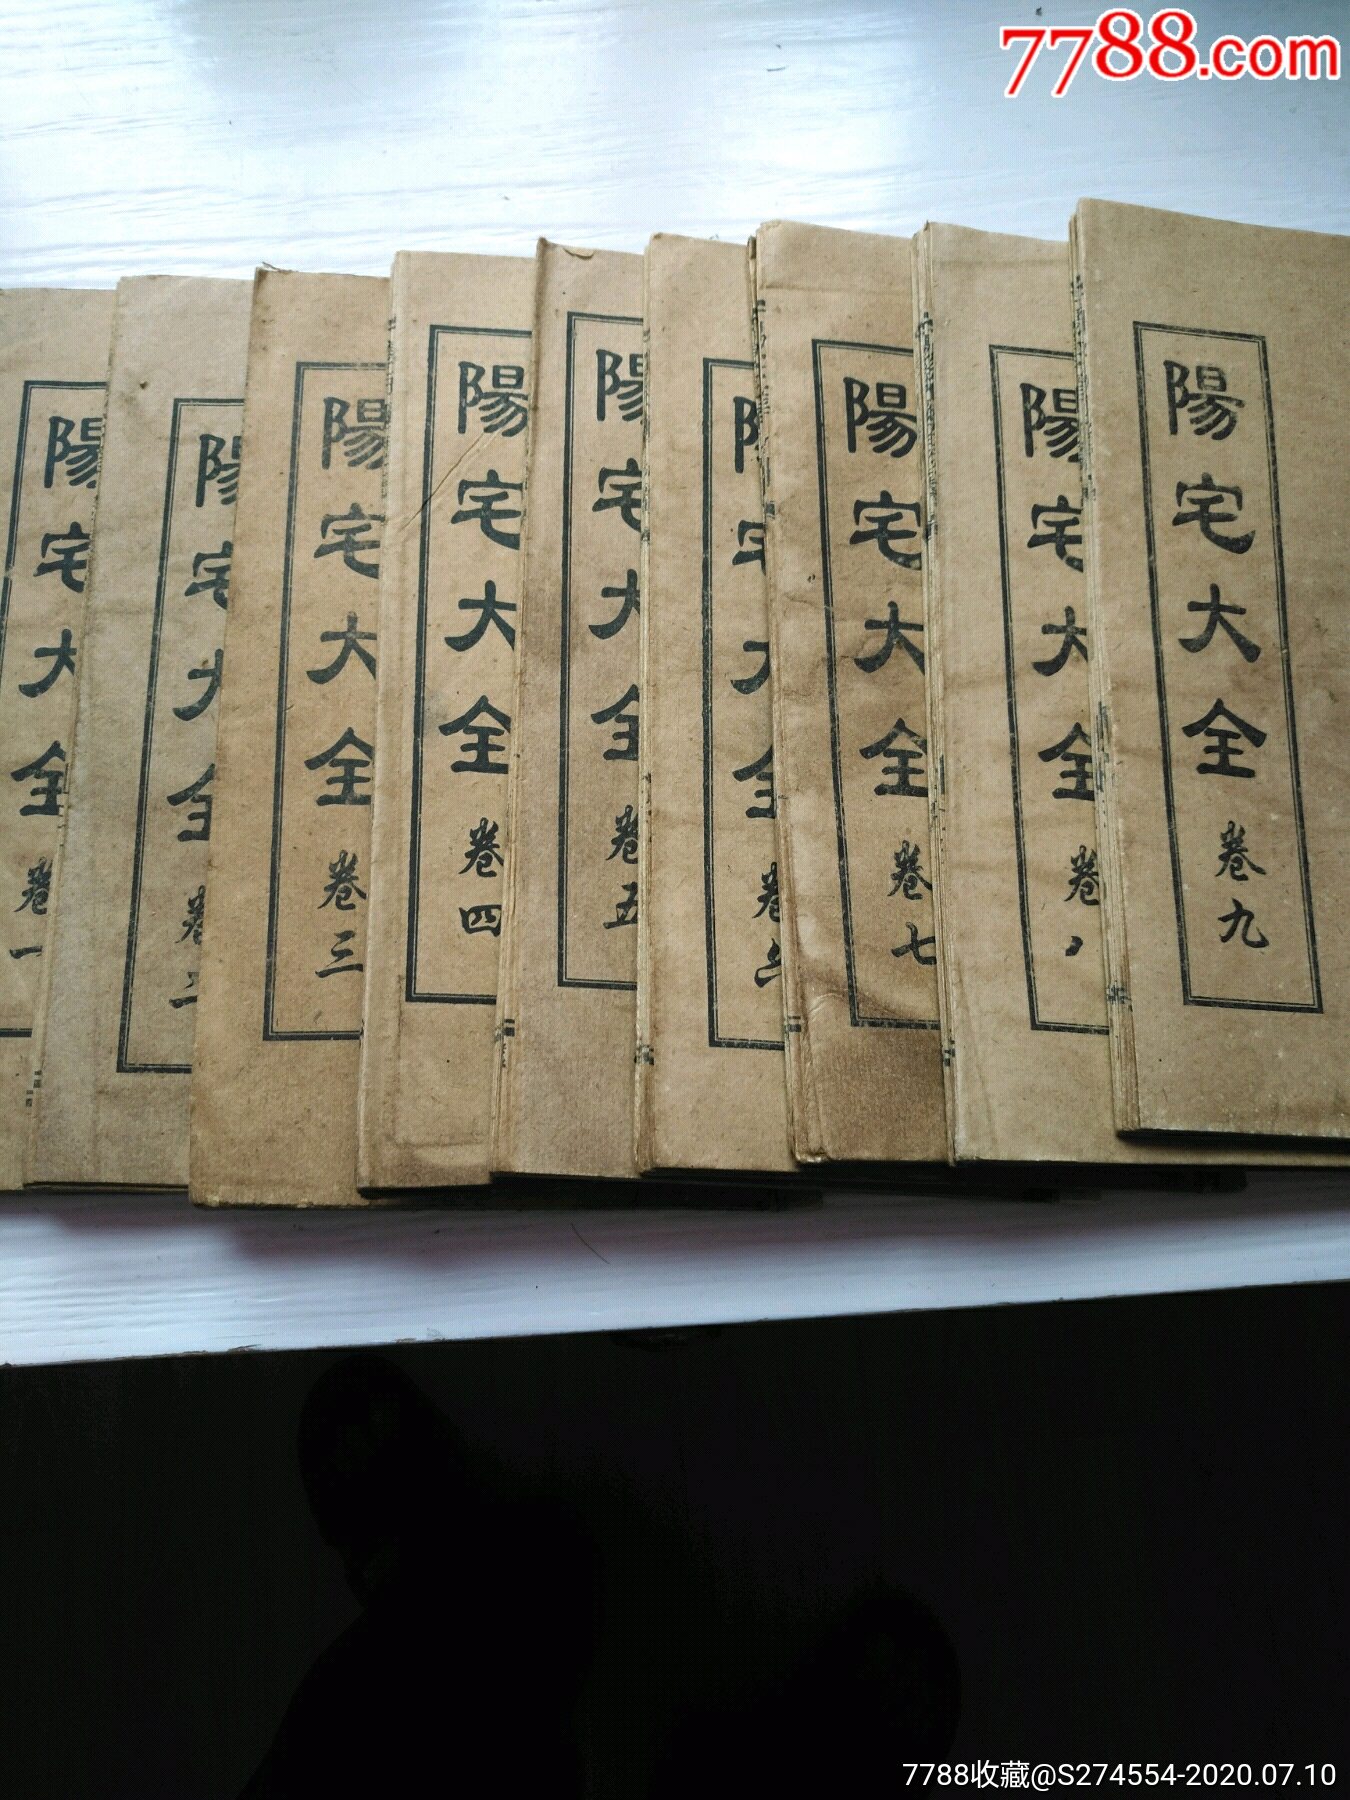 7788.com
陽宅大全 卷一
陽宅大全 卷二
陽宅大全 卷三
陽宅大全 卷四
陽宅大全 卷五
陽宅大全 卷六
陽宅大全 卷七
陽宅大全 卷八
陽宅大全 卷九
7788收藏@S274554-2020.07.10